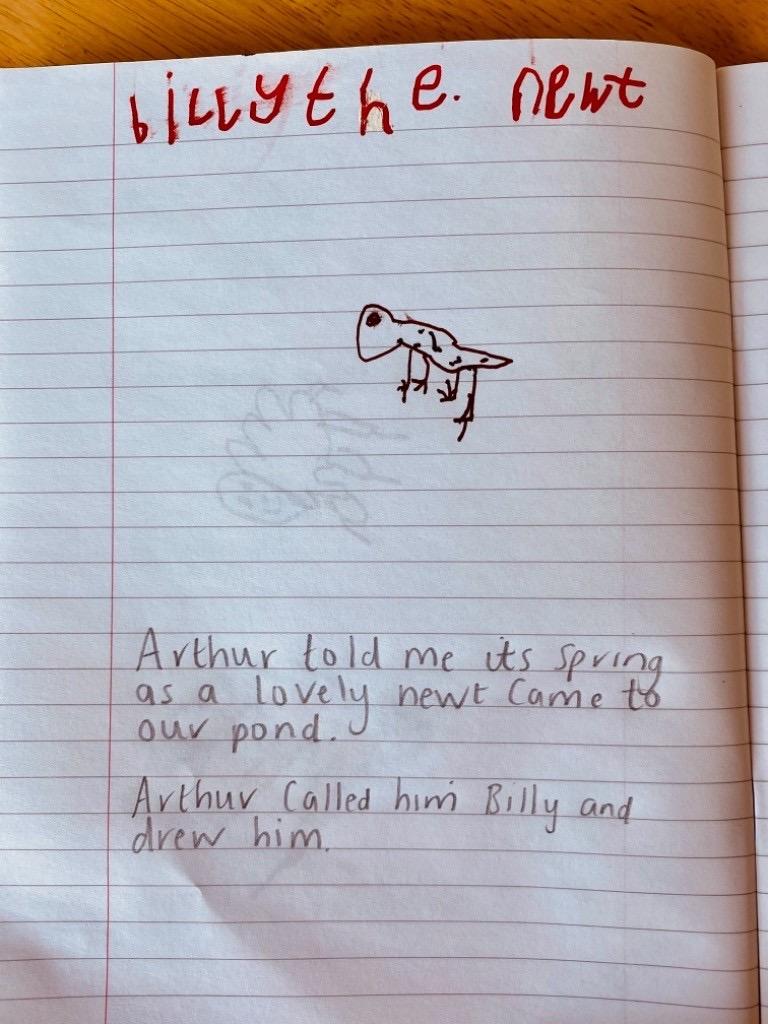 billy the. newt
Arthur told me its spring
as a lovely newt came to
our pond.
Arthur called him Billy and
drew him.